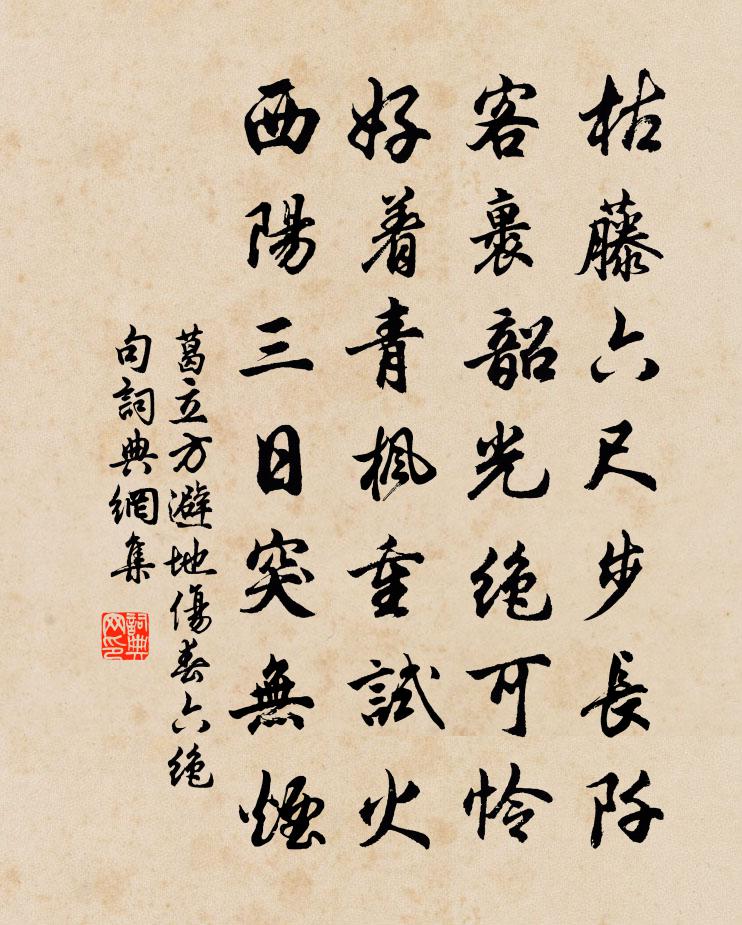 枯藤六尺步長阡
客裏韶光絶可怜
好着青楓重試火
西陽三日突無煙
葛立方避地傷春六絶
句詞典網集
詞典网印